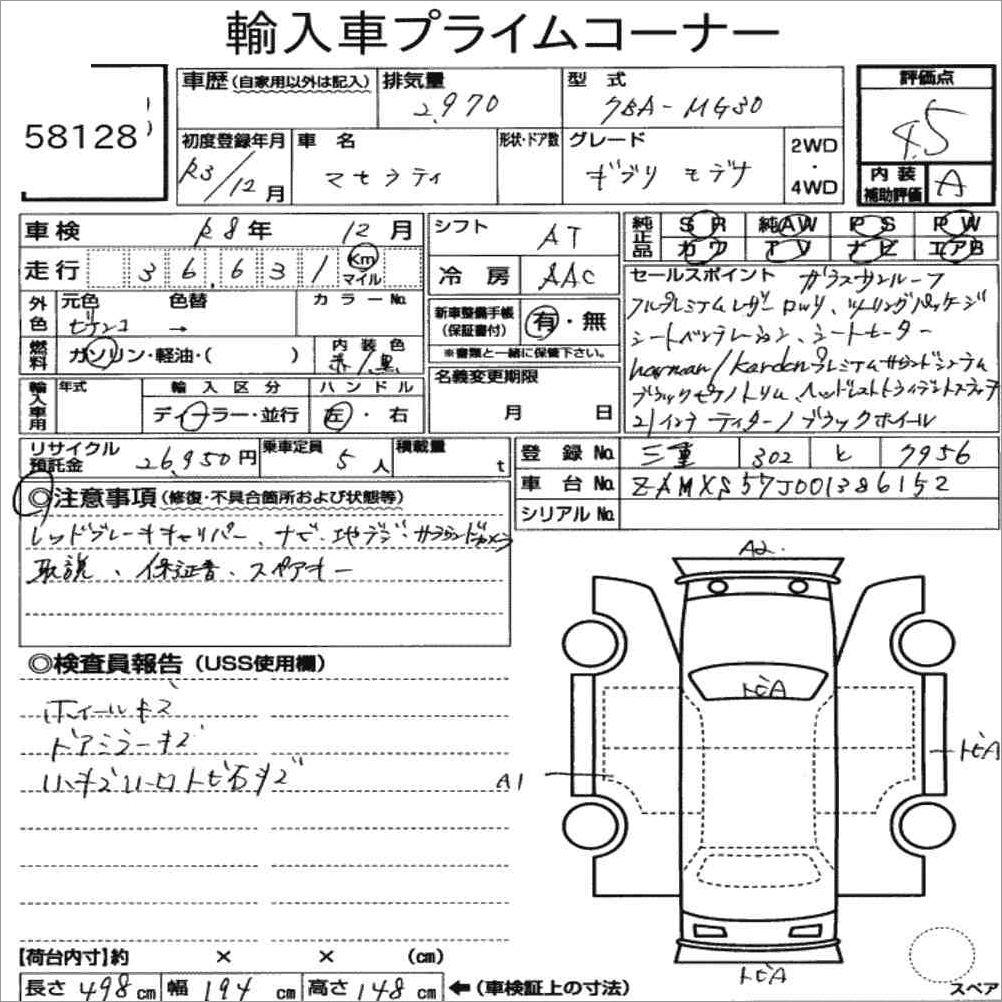 輸入車プライムコーナー
58128
車歴(自家用以外は記入)
排気量 2,970
型式 7BA-MG30
初度登録年月 R3/12月
車名 マセラティ
形状・ドア数
グレード ギブリ モデナ
2WD・4WD
評価点 4.5
内装補助評価 A
車検 R8年 12月
走行 36,631 Km マイル
外色 元色 ビアンコ 色替 → カラーNo.
燃料 ガソリン・軽油・( ) 内装色 赤/黒
輸入車用 年式 輸入区分 ディーラー・並行 ハンドル 左・右
シフト AT
冷房 AAC
新車整備手帳(保証書付) 有・無
※書類と一緒に保管下さい。
名義変更期限 月 日
純正品 SR 純AW PS PW
カワ TV ナビ エアB
セールスポイント ガラスサンルーフ
フルプレミアムレザー ロッソ、ツーリングパッケージ
シートベンチレーション、シートヒーター
harman/kardonプレミアムサウンドシステム
ブラックピアノトリム、ヘッドレストトライデントステッチ
21インチ ティターノ ブラックホイール
リサイクル預託金 26,950円
乗車定員 5人
積載量 t
登録No. 三重 302 と 7956
車台No. ZAMXS57J001386152
シリアルNo.
◎注意事項(修復・不具合箇所および状態等)
レッドブレーキキャリパー、ナビ・地デジ・サラウンドカメラ
取説、保証書、スペアキー
◎検査員報告(USS使用欄)
ホイールキズ
ドアミラーキズ
小キズ小凹トビ石キズ
A2.
トビA
トビA
A1
トビA
スペア
【荷台内寸】約 × × (cm)
長さ 498cm 幅 194cm 高さ 148cm ←(車検証上の寸法)